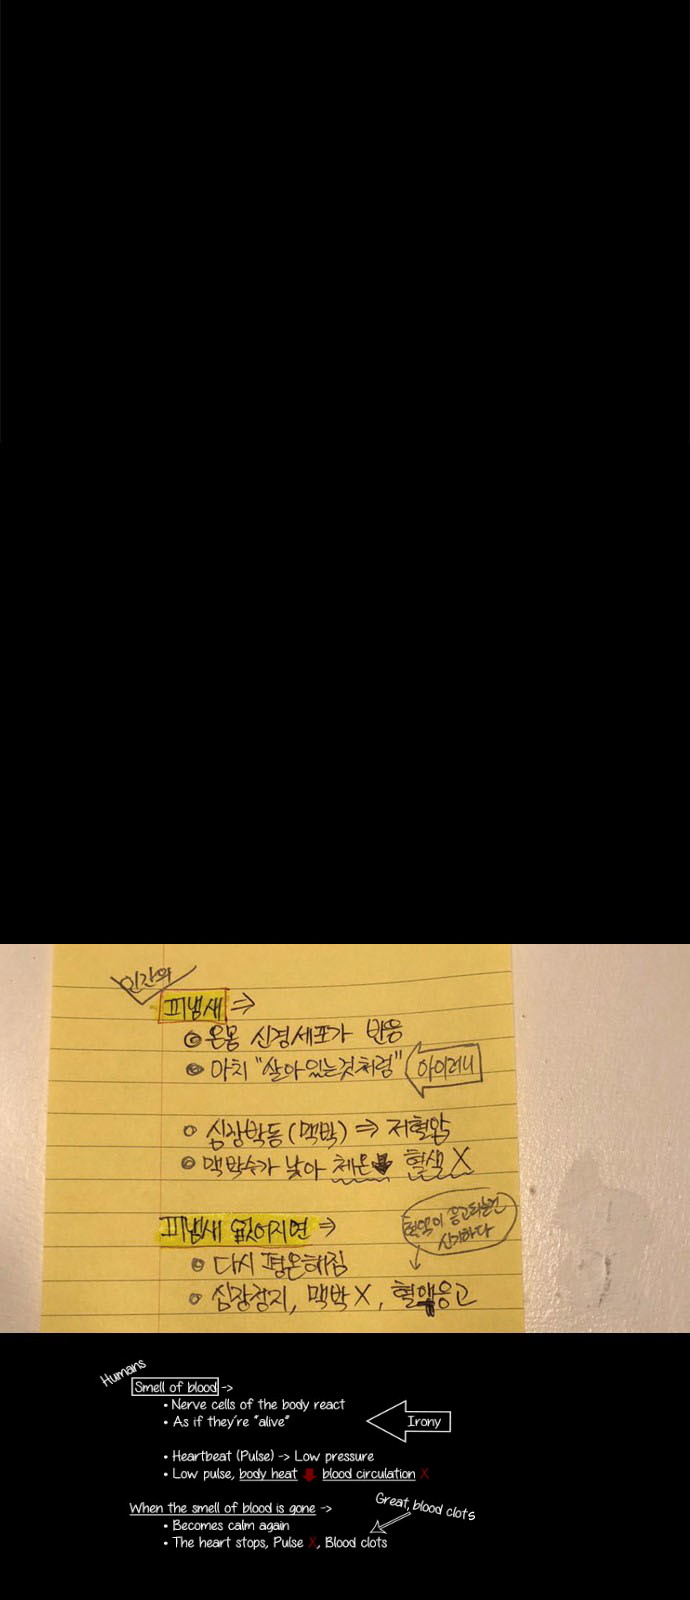 인간의
피냄새 ⇒
온몸 신경세포가 반응
마치 "살아있는것처럼" 아이러니
심장박동(맥박) ⇒ 저혈압
맥박수가 낮아 체온⬇ 혈색 X
피냄새 없어지면 ⇒
혈액이 응고되는건
신기하다
다시 평온해짐
심장정지, 맥박 X, 혈액응고
Humans
Smell of blood ->
• Nerve cells of the body react
• As if they're "alive" Irony
• Heartbeat (Pulse) -> Low pressure
• Low pulse, body heat ⬇ blood circulation X
When the smell of blood is gone ->
Great, blood clots
• Becomes calm again
• The heart stops, Pulse X, Blood clots